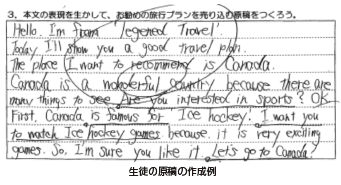 3. 本文の表現を生かして、お勧めの旅行プランを売り込む原稿をつくろう。
Hello. I'm from "legened Travel"
Today I'll show you a good travel plan.
The place I want to recommend is Canada.
Canada is a wonderful country because there are
many things to see. Are you interested in sports? OK
First, Canada is famous for Ice hockey. I want you
to watch Ice hockey games because. it is very exciting
games. So, I'm sure you like it. Let's go to Canada!
生徒の原稿の作成例